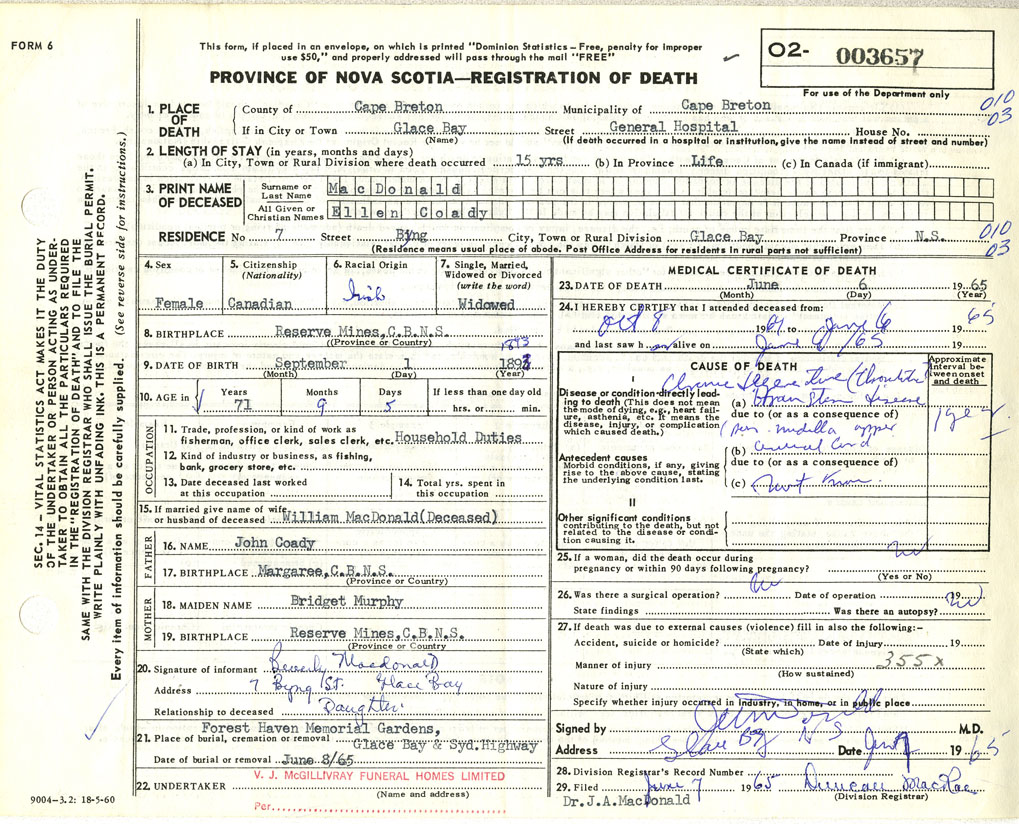 FORM 6
This form, if placed in an envelope, on which is printed "Dominion Statistics – Free, penalty for improper
use $50," and properly addressed will pass through the mail "FREE"
PROVINCE OF NOVA SCOTIA—REGISTRATION OF DEATH
O2- 003657
For use of the Department only
SEC. 14 – VITAL STATISTICS ACT MAKES IT THE DUTY
OF THE UNDERTAKER OR PERSON ACTING AS UNDER-
TAKER TO OBTAIN ALL THE PARTICULARS REQUIRED
IN THE "REGISTRATION OF DEATH" AND TO FILE THE
SAME WITH THE DIVISION REGISTRAR WHO SHALL ISSUE THE BURIAL PERMIT.
WRITE PLAINLY WITH UNFADING INK. THIS IS A PERMANENT RECORD.
Every item of information should be carefully supplied. (See reverse side for instructions.)
1. PLACE OF DEATH
County of Cape Breton Municipality of Cape Breton 010
If in City or Town Glace Bay Street General Hospital House No. 03
(Name) (If death occurred in a hospital or institution, give the name instead of street and number)
2. LENGTH OF STAY (in years, months and days)
(a) In City, Town or Rural Division where death occurred 15 yrs (b) In Province Life (c) In Canada (if immigrant)
3. PRINT NAME OF DECEASED
Surname or Last Name MacDonald
All Given or Christian Names Ellen Coady
RESIDENCE No 7 Street Byng City, Town or Rural Division Glace Bay Province N.S. 010
(Residence means usual place of abode. Post Office Address for residents in rural parts not sufficient) 03
4. Sex Female
5. Citizenship (Nationality) Canadian
6. Racial Origin Irish
7. Single, Married, Widowed or Divorced (write the word) Widowed
8. BIRTHPLACE Reserve Mines,C.B.N.S.
(Province or Country)
1893
9. DATE OF BIRTH September 1 1893
(Month) (Day) (Year)
10. AGE in Years 71 Months 9 Days 5 If less than one day old hrs. or min.
OCCUPATION
11. Trade, profession, or kind of work as
fisherman, office clerk, sales clerk, etc. Household Duties
12. Kind of industry or business, as fishing,
bank, grocery store, etc.
13. Date deceased last worked at this occupation
14. Total yrs. spent in this occupation
15. If married give name of wife
or husband of deceased William MacDonald(Deceased)
FATHER
16. NAME John Coady
17. BIRTHPLACE Margaree,C.B.N.S.
(Province or Country)
MOTHER
18. MAIDEN NAME Bridget Murphy
19. BIRTHPLACE Reserve Mines,C.B.N.S.
(Province or Country
20. Signature of informant Beverly Macdonald
Address 7 Byng St. Glace Bay
Relationship to deceased Daughter
Forest Haven Memorial Gardens,
21. Place of burial, cremation or removal Glace Bay & Syd.Highway
Date of burial or removal June 8/65
V. J. McGILLIVRAY FUNERAL HOMES LIMITED
22. UNDERTAKER
(Name and address)
Per
9004-3.2: 18-5-60
MEDICAL CERTIFICATE OF DEATH
23. DATE OF DEATH June 6 1965
(Month) (Day) (Year)
24. I HEREBY CERTIFY that I attended deceased from:
Oct 8 1961 to June 6 1965
and last saw h alive on June 6/65 19
CAUSE OF DEATH
Approximate interval between onset and death
I
Disease or condition directly leading to death (This does not mean the mode of dying, e.g., heart failure, asthenia, etc. It means the disease, injury, or complication which caused death.)
Chronic
(a) Brain Stem disease
due to (or as a consequence of)
medulla upper
(b) Cord
Antecedent causes
Morbid conditions, if any, giving rise to the above cause, stating the underlying condition last.
due to (or as a consequence of)
(c) not known
II
Other significant conditions
contributing to the death, but not related to the disease or condition causing it.
25. If a woman, did the death occur during
pregnancy or within 90 days following pregnancy? no
(Yes or No)
26. Was there a surgical operation? no Date of operation 19
State findings Was there an autopsy? no
27. If death was due to external causes (violence) fill in also the following:–
Accident, suicide or homicide? Date of injury 19
(State which)
Manner of injury 355x
(How sustained)
Nature of injury
Specify whether injury occurred in Industry, in home, or in public place
Signed by M.D.
Address Glace Bay N S Date June 7 1965
28. Division Registrar's Record Number
29. Filed June 7 1965 Duncan MacRae
(Division Registrar)
Dr.J.A.MacDonald